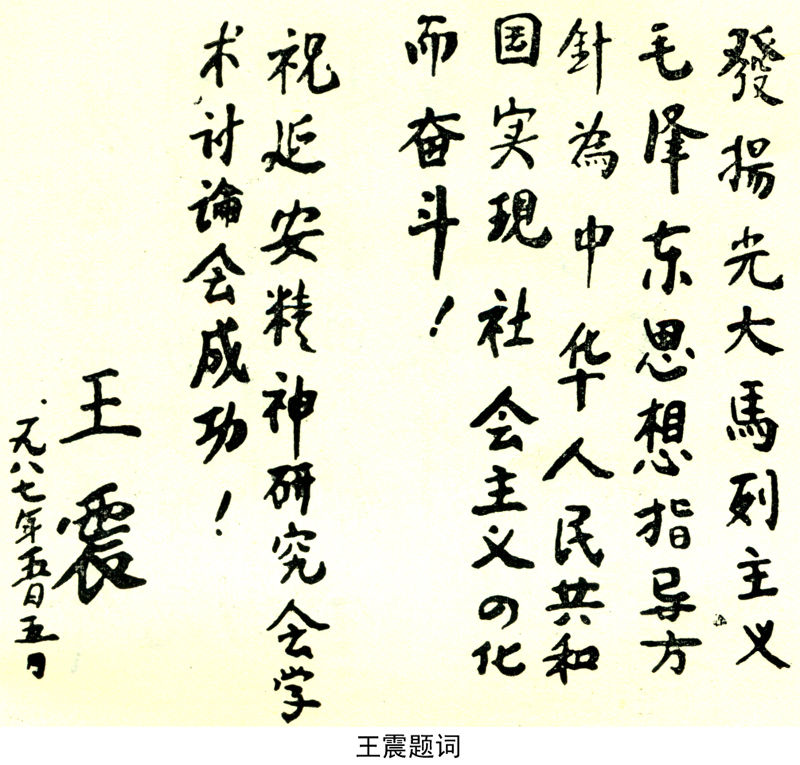 發揚光大馬列主义
毛泽东思想指导方
針為中华人民共和
国实現社会主义の化
而奋斗！
祝延安精神研究会学
术讨論会成功！
王震
一九八七年五月五日
王震题词